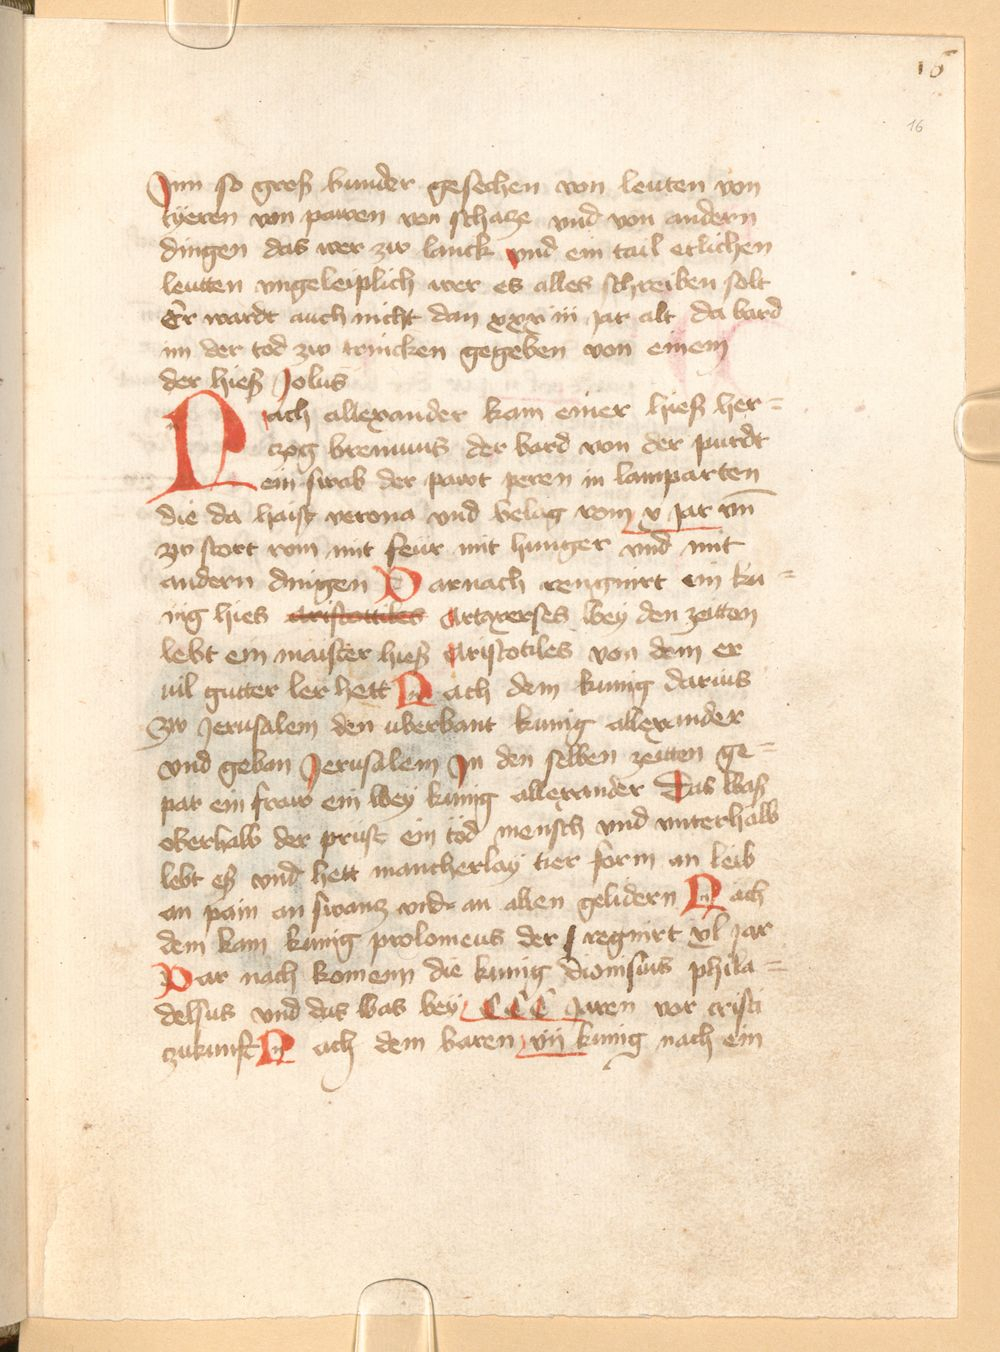 16
16
Inn so groß bunder gesechen von leuten von
tyeren von pawen von schacze vnd von andern
dingen das wer zw lanck vnd ein tail etlichen
leutten vngeleiplich wer es alles schreiben solt
Er wardt auch nicht dan xxxiii jar alt da bard
im der tod zw trincken gegeben von einem
der hieß Jolus
Nach allexander kam einer hieß her=
czog brennius der bard von der purdt
ein swab der pawt peren in lamparten
die da haist verona vnd belag rom v jar vnd
zw stort rom mit feür mit hunger vnd mit
andern dingen Darnach rengnirt ein ku=
nig hies aristottiles Artxerses bey den zeitten
lebt ein maister hieß Aristotiles von dem er
uil gutter ler hett Nach dem kunig darius
zw Jerusalem den uberbant kunig allexander
vnd geban Jerusalem In den selben zeitten ge=
par ein fraw ein bey kunig allexander Das baß
oberhalb der prüst ein tod mensch vnd vnterhalb
lebt eß vnd hett mancherlay tier form an leib
an pain an swancz vnd an allen gelidern Nach
dem kam kunig ptolomeus der regnirt xl jar
Dar nach komenn die kunig dionisius phila=
delfus vnd das was bey CCC Jaren vor cristi
zukunft Nach dem baren vii kunig nach ein